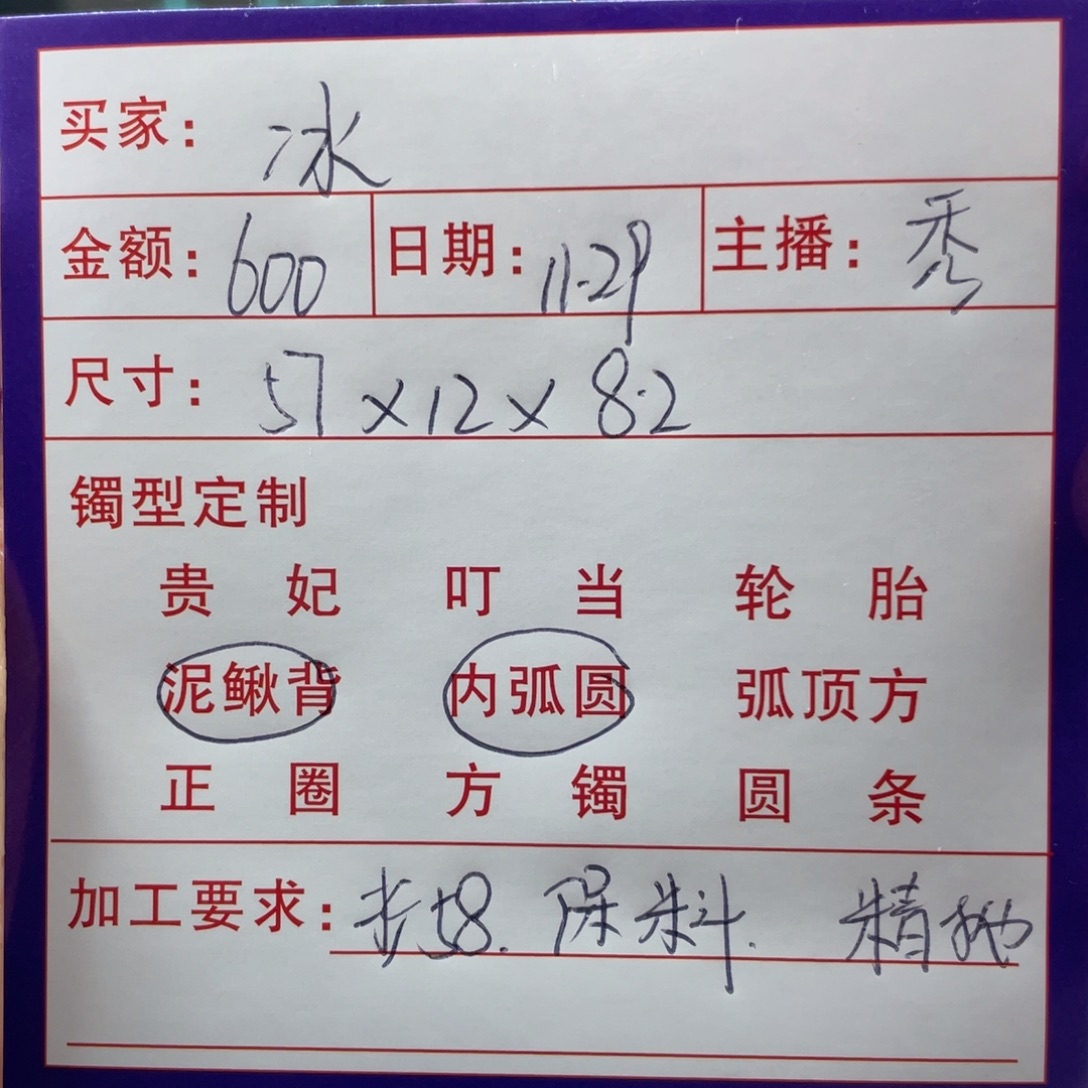 买家：冰
金额：600 日期：11.29 主播：秀
尺寸：57×12×8.2
镯型定制
贵妃 叮当 轮胎
泥鳅背 内弧圆 弧顶方
正圈 方镯 圆条
加工要求：长58. 保料. 精抛